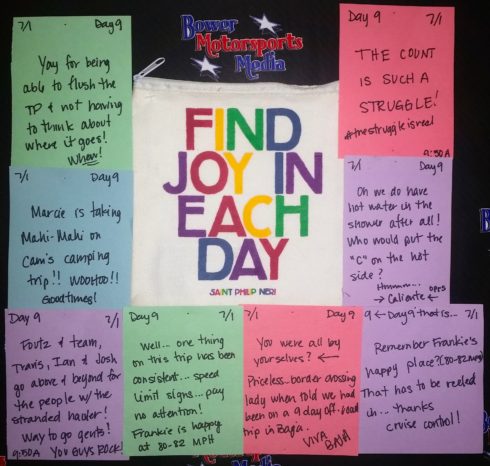 Bower
Motorsports
Media
FIND
JOY IN
EACH
DAY
SAINT PHILIP NERI
7/1 Day 9
Yay for being
able to flush the
TP & not having
to think about
where it goes!
Whew!
Day 9 7/1
THE COUNT
IS SUCH A
STRUGGLE!
#thestruggleisreal
9:50A
7/1 Day 9
Marcie is taking
Mahi-Mahi on
Cam's camping
trip!! WOOHOO!!
Good times!
7/1 Day 9
Oh we do have
hot water in the
shower after all!
Who would put the
"C" on the hot
side?
Hmmmm... OOPS
→ Caliente
Day 9 7/1
Foutz & team,
Travis, Ian & Josh
go above & beyond for
the people w/ the
stranded hauler!
Way to go gents!
9:50A YOU GUYS ROCK!
Day 9 7/1
Well... one thing
on this trip has been
consistent... speed
limit signs... pay
no attention!
Frankie is happy
at 80-82 MPH
You were all by
yourselves? ←
Priceless... border crossing
lady when told we had
been on a 9 day off-road
trip in Baja.
VIVA
BAJA
9 ← Day 9 that is... 7/1
Remember Frankie's
happy place? (80-82 mph)
That has to be reeled
in... thanks
cruise control!
Bower
Motorsports
Media